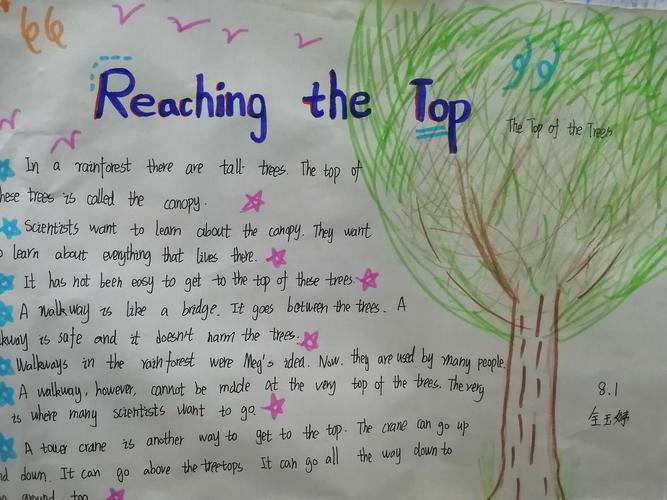 Reaching the Top
The Top of the Trees
In a rainforest there are tall trees. The top of
these trees is called the canopy.
Scientists want to learn about the canopy. They want
learn about everything that lives there.
It has not been easy to get to the top of these trees
A walkway is like a bridge. It goes between the trees. A
kway is safe and it doesn't harm the trees.
Walkways in the rainforest were Meg's idea. Now. they are used by many people.
A walkway, however, cannot be made at the very top of the trees. The very
is where many scientists want to go.
A tower crane is another way to get to the top. The crane can go up
nd down. It can go above the treetops. It can go all the way down to
around too
8.1
全玉婷